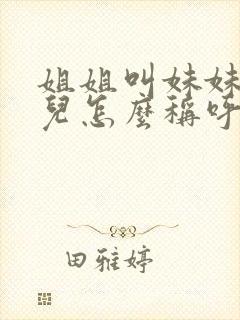 姐姐叫妹妹
兒怎麼稱呼
田雅婷